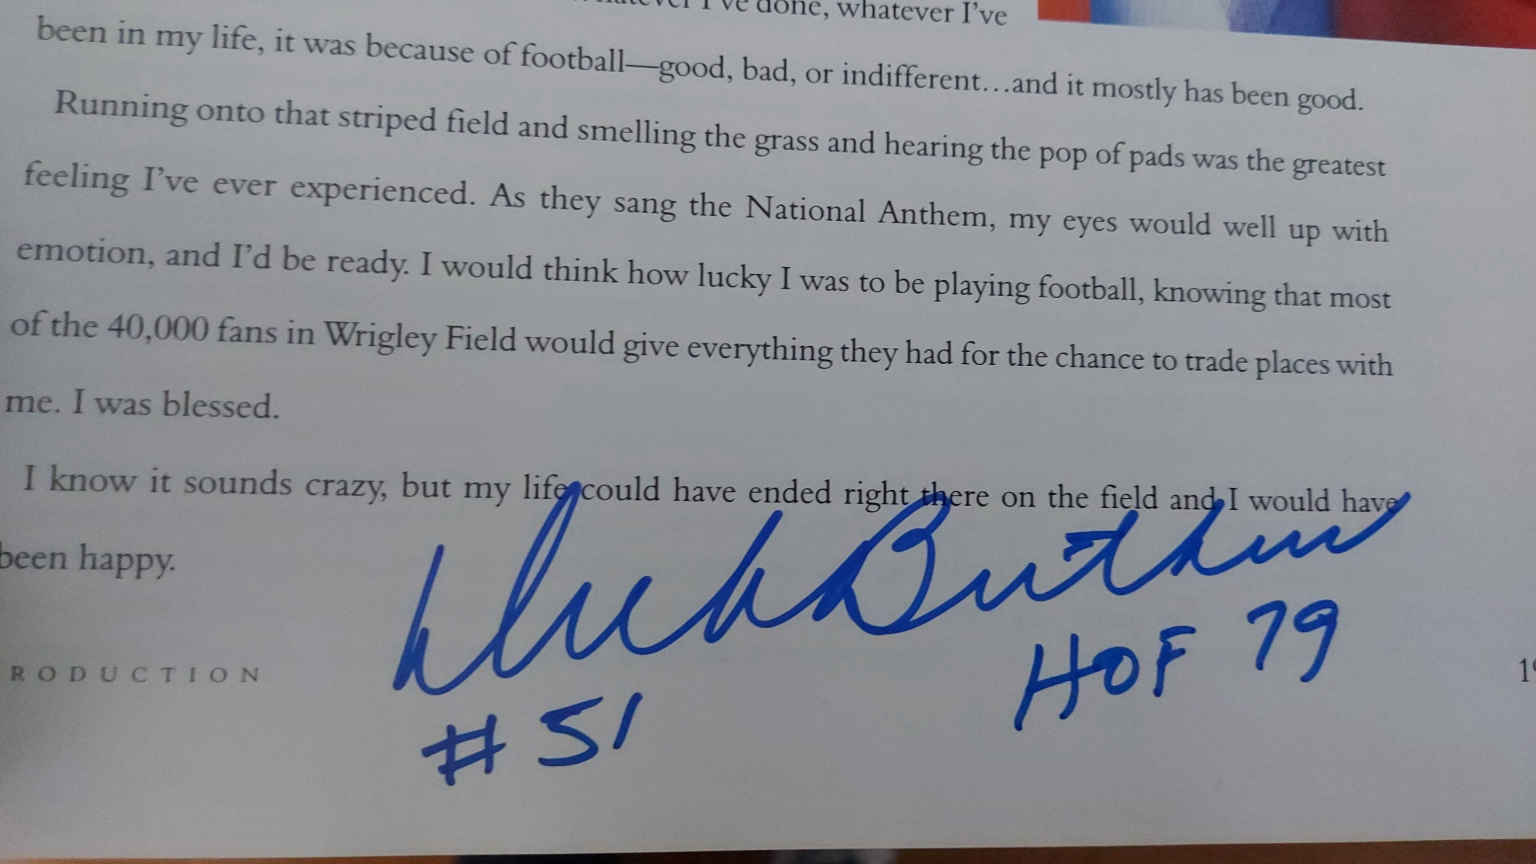 I've done, whatever I've
been in my life, it was because of football—good, bad, or indifferent…and it mostly has been good.
Running onto that striped field and smelling the grass and hearing the pop of pads was the greatest
feeling I've ever experienced. As they sang the National Anthem, my eyes would well up with
emotion, and I'd be ready. I would think how lucky I was to be playing football, knowing that most
of the 40,000 fans in Wrigley Field would give everything they had for the chance to trade places with
me. I was blessed.
I know it sounds crazy, but my life could have ended right there on the field and I would have
been happy.
Dick Butkus
#51
HOF 79
RODUCTION